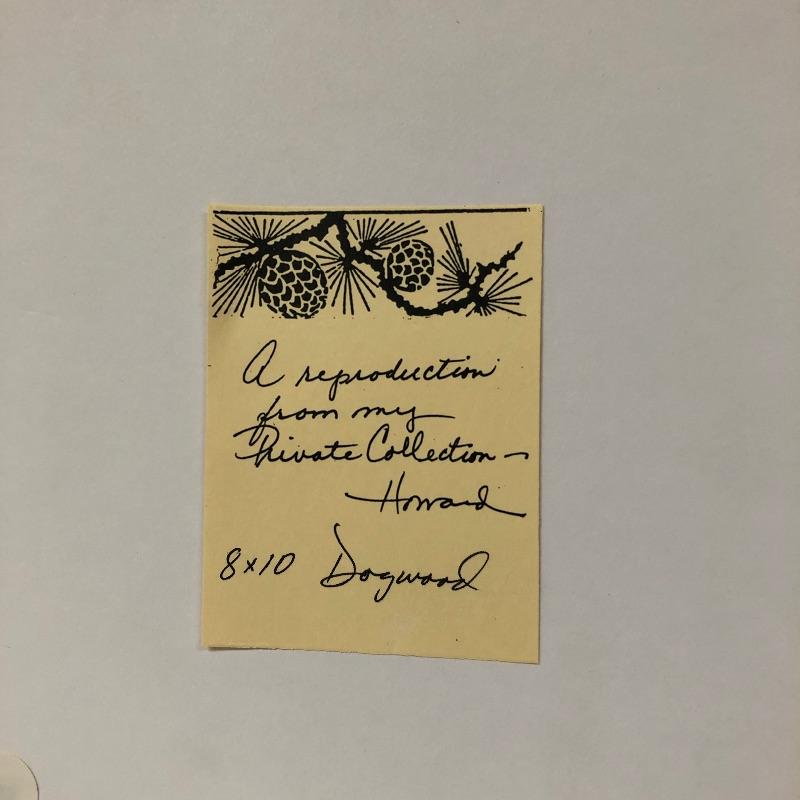 A reproduction
from my
Private Collection -
Howard
8x10 Dogwood